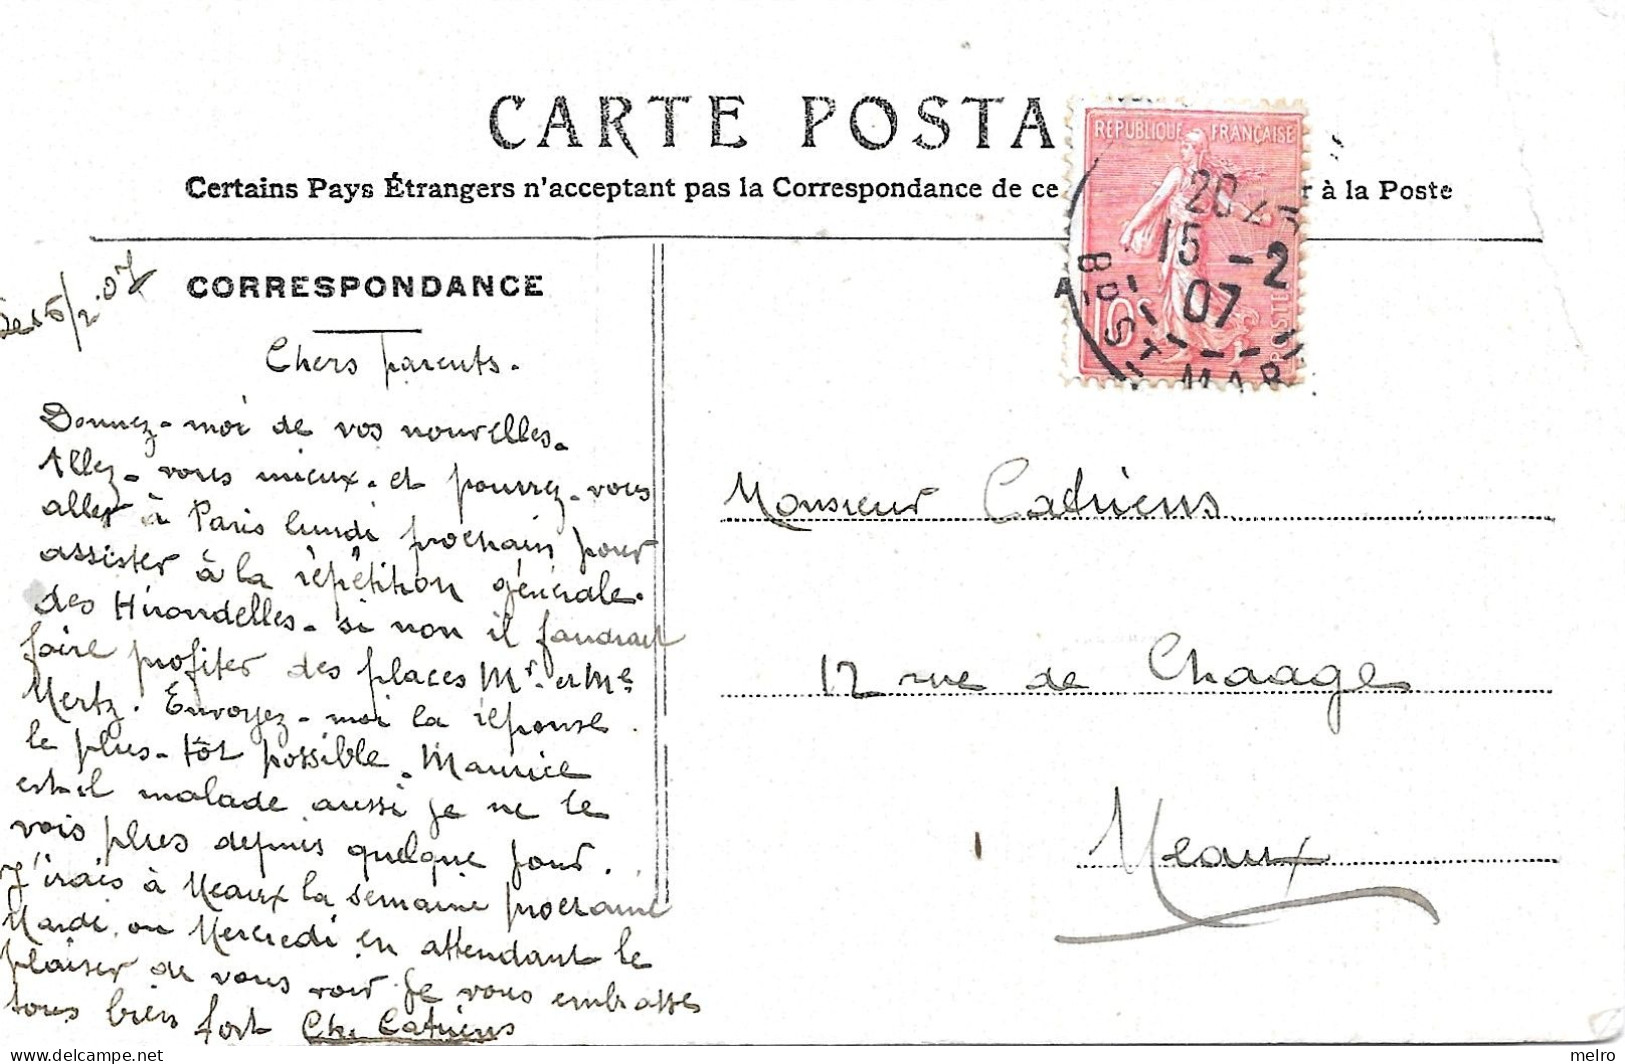 CARTE POSTA
Certains Pays Étrangers n'acceptant pas la Correspondance de ce r à la Poste
RÉPUBLIQUE FRANÇAISE
10c
POSTE
20
15 -2
07
BD ST
MAR
15/2.07
CORRESPONDANCE
Chers parents.
Donnez-moi de vos nouvelles.
Allez-vous mieux. et pourrez-vous
aller à Paris lundi prochain pour
assister à la répétition générale.
des Hirondelles. si non il faudrait
faire profiter des places Mr. et Me
Mertz. Envoyez-moi la réponse.
le plus-tôt possible. Maurice
est-il malade aussi je ne le
vois plus depuis quelque jour.
J'irais à Meaux la semaine prochaine
Mardi ou Mercredi en attendant le
plaisir de vous voir je vous embrasse
tous bien fort Ch. Catriens
Monsieur Catriens
12 rue de Chaage
Meaux
melro
delcampe.net